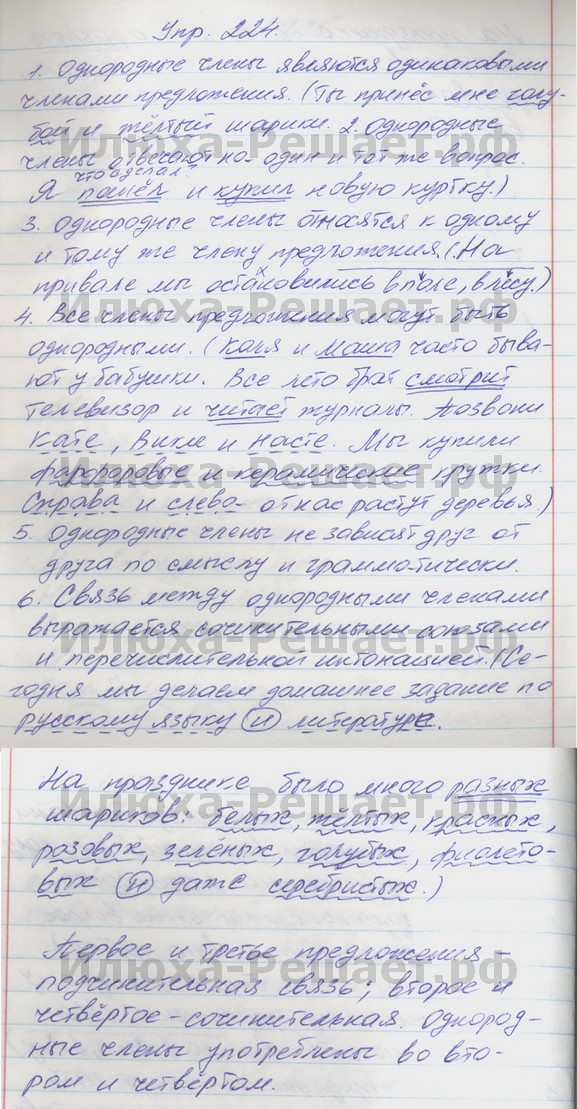 Упр. 224.
1. Однородные члены являются одинаковыми
членами предложения. (Ты принёс мне голу-
бой и жёлтый шарики. 2. Однородные
члены отвечают на один и тот же вопрос.
что сделал?
Я пошёл и купил новую куртку.)
3. Однородные члены относятся к одному
и тому же члену предложения. (На
привале мы остановились в поле, в лесу.)
Илюха-Решает.рф
4. Все члены предложения могут быть
однородными. (Коля и Маша часто быва-
ют у бабушки. Все лето брат смотрит
телевизор и читает журналы. Позвони
Кате, Вике и Насте. Мы купили
фарфоровые и керамические кружки.
Илюха-Решает.рф
Справа и слева от нас растут деревья.)
5. Однородные члены не зависят друг от
друга по смыслу и грамматически.
6. Связь между однородными членами
выражается сочинительными союзами
Илюха-Решает.рф
и перечислительной интонацией. (Се-
годня мы делаем домашнее задание по
русскому языку и литературе.
На празднике было много разных
Илюха-Решает.рф
шариков: белых, жёлтых, красных,
розовых, зелёных, голубых, фиолето-
вых и даже серебристых.)
Первое и третье предложения –
Илюха-Решает.рф
подчинительная связь; второе и
четвёртое – сочинительная. Однород-
ные члены употреблены во вто-
ром и четвёртом.